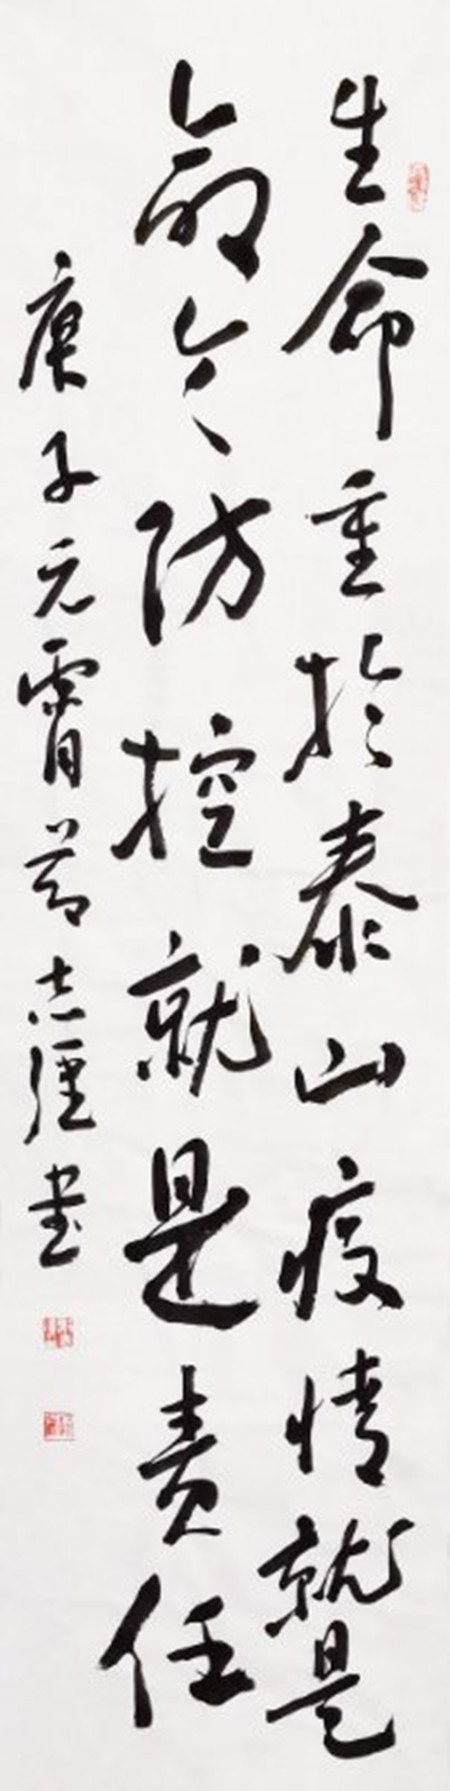 生命重於泰山疫情就是
命令防控就是責任
庚子元宵節志強書